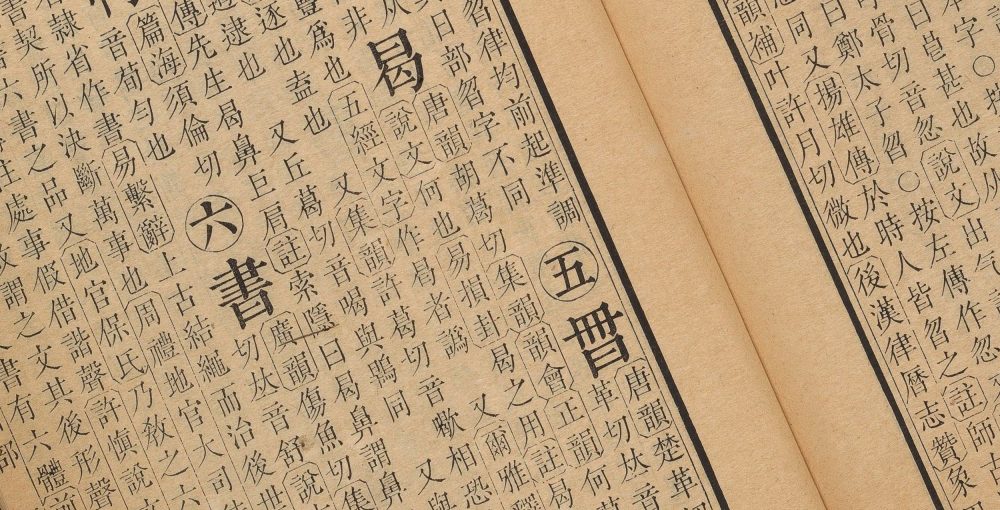 本字○按
甚也故从
骨切音忽說文出气
曰鄭太子曶○按左傳作忽
同又揚雄傳於時人皆曶之註師古
韻補叶許月切微也後漢律曆志贊象
曶律均前起準調
曰部曶字不同
㊄
唐韻楚革
革切𠀤音
曷
唐韻胡葛切集韻韻會正韻何
說文何也易損封曷之用註曷
五經文字作曷者譌 又爾雅釋
非也 又集韻許葛切音歇相恐
爲也 又丘葛切音喝與鶡同 又與
逐也盍也
逮也
傳先生曷鼻巨肩註索隱曰曷鼻謂鼻
篇海須倫切
音荀勻也
㊅
書
廣韻傷魚切集
切𠀤音舒說
省作書易繫辭上古結繩而治後世
書契所以決斷萬事也周禮地官大司
六書之品又地官保氏乃敎之六
處事假借諧聲許愼說文
謂之文其後形聲
書有六體